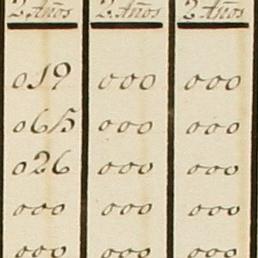 2 Años 2 Años 2 Años
019 000 000
065 000 000
026 000 000
000 000 000
000 000 000